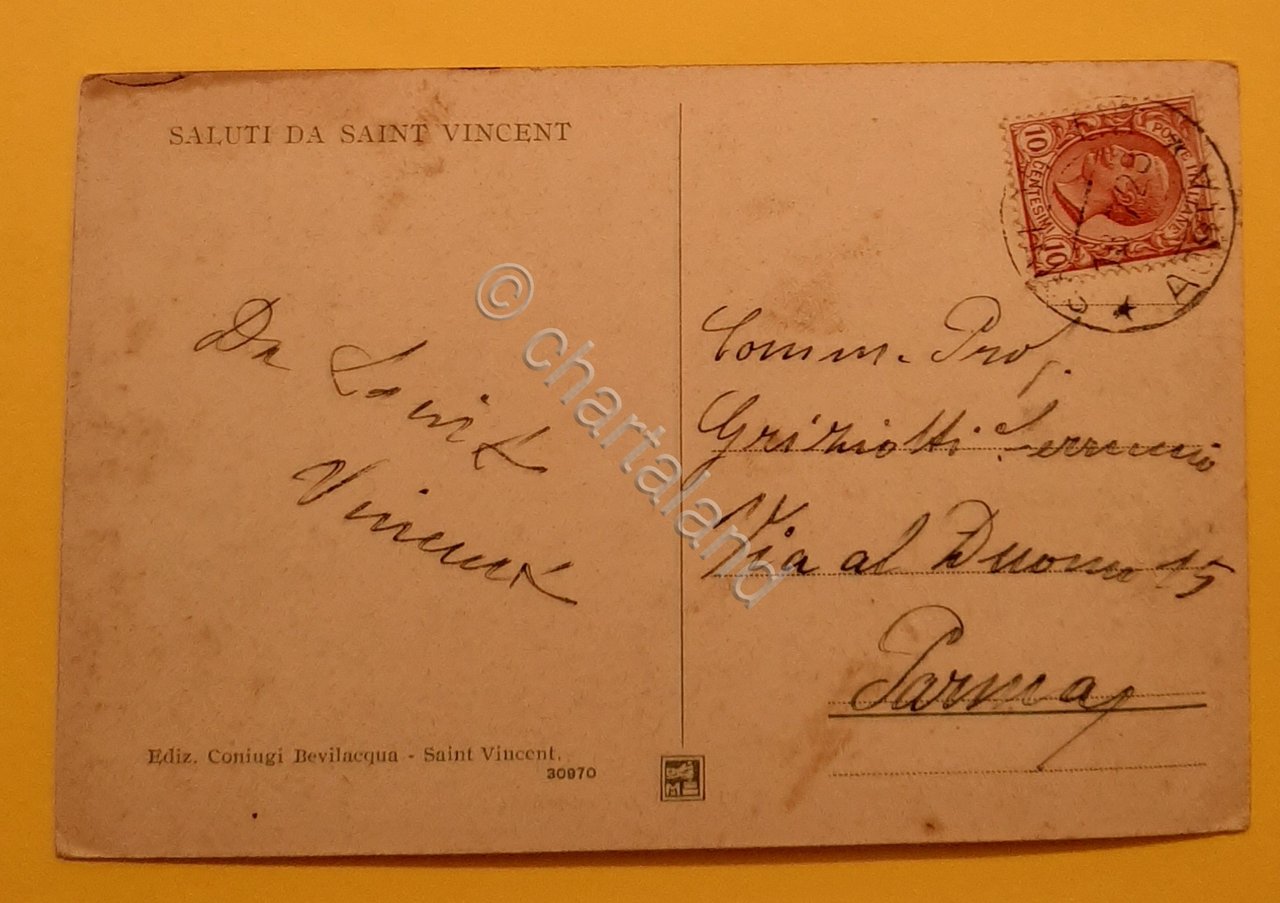 SALUTI DA SAINT VINCENT
Da Saint
Vincent
Ediz. Coniugi Bevilacqua - Saint Vincent.
30970
ME
10 CENTESIMI 10
POSTE ITALIANE
Comm. Prof.
Griziotti Ferruccio
Via al Duomo 15
Parma
© chartaland